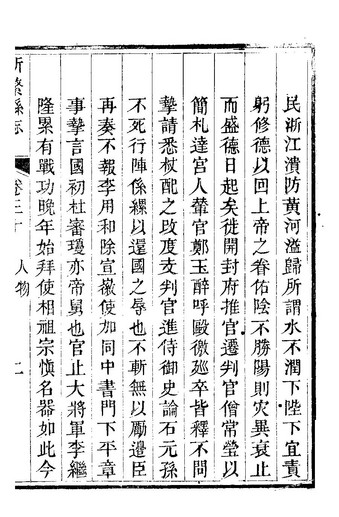 民浙江潰防黃河溢歸所謂水不潤下陛下宜責
躬修德以回上帝之眷佑陰不勝陽則灾異衰止
而盛德日起矣徙開封府推官遷判官僧常瑩以
簡札達宮人輦官鄭玉醉呼毆徼廵卒皆釋不問
摯請悉杖配之改度支判官進侍御史論石元孫
不死行陣係縲以還國之辱也不斬無以勵邊臣
再奏不報李用和除宣徽使加同中書門下平章
事摯言國初杜審瓊亦帝舅也官止大將軍李繼
隆累有戰功晚年始拜使相祖宗愼名器如此今
新繁縣志 卷三十 人物 二